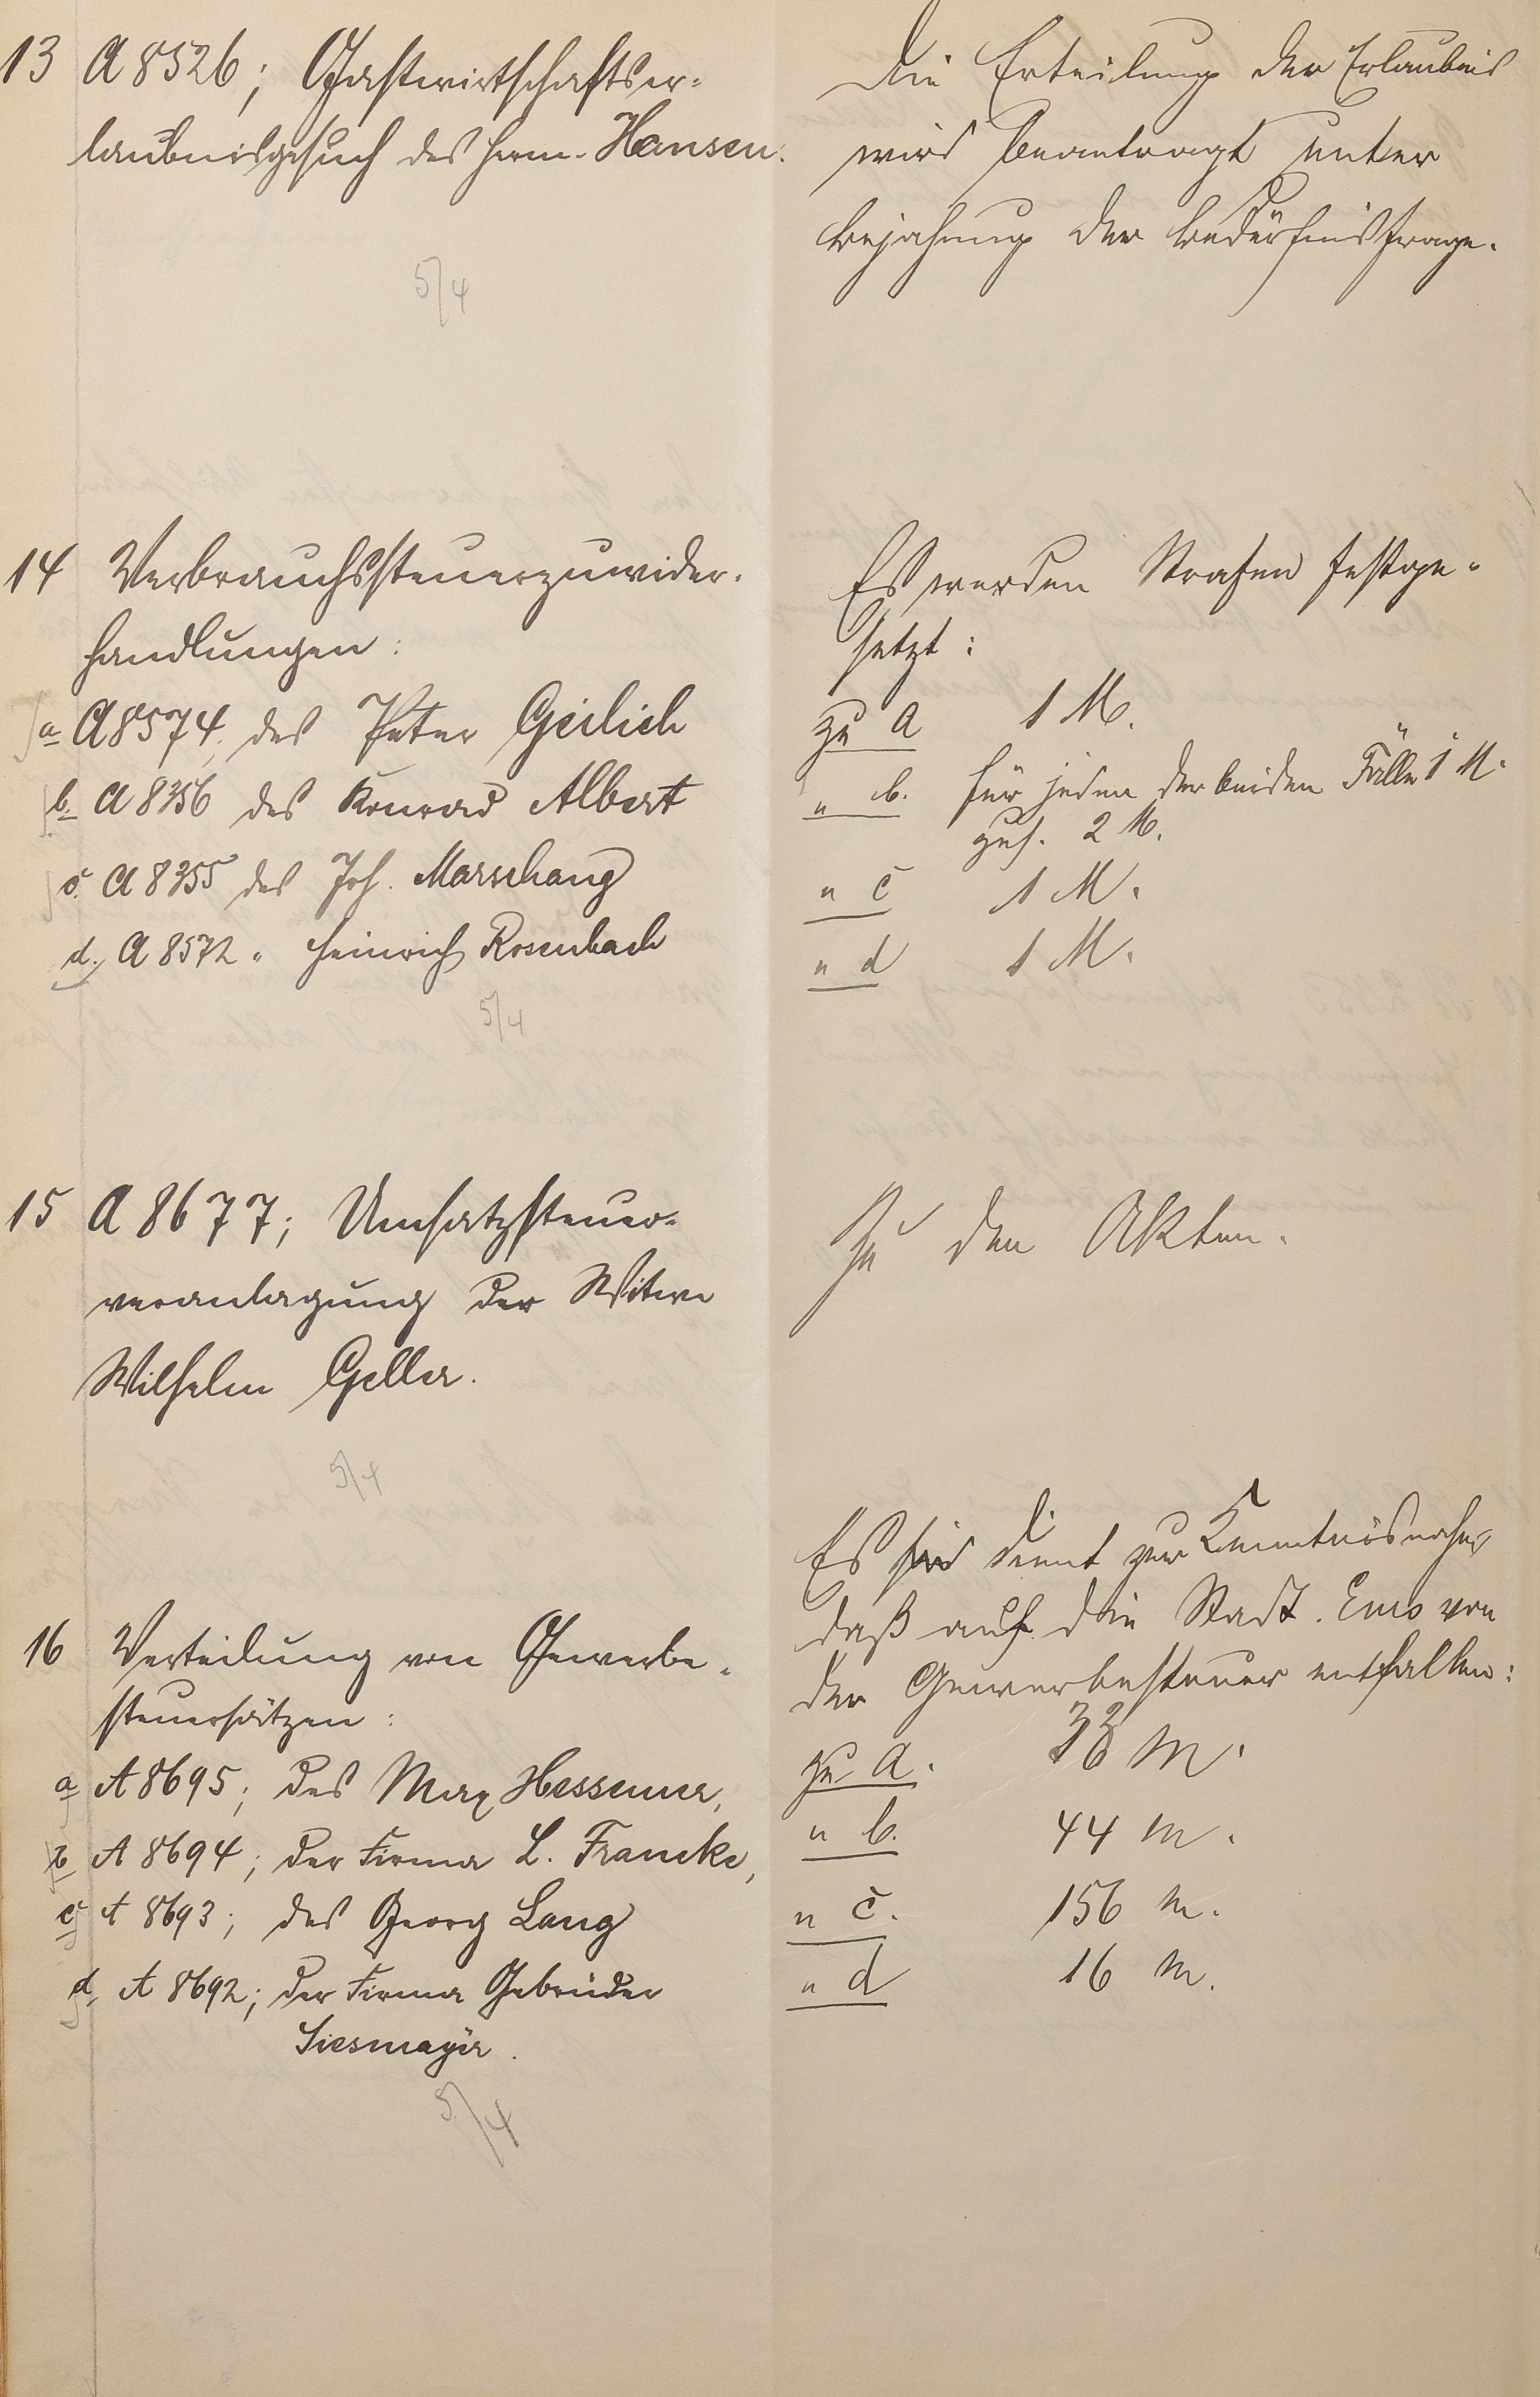 13 A 8526; Gastwirtschaftser-
laubnisgesuch des Herm. Hansen.
5/4
Die Erteilung der Erlaubnis
wird beantragt unter
Bejahung der Bedürfnisfrage.
14 Verbrauchssteuerzuwider-
handlungen:
a A 8574, des Peter Geilich
b. A 8356 des Konrad Albert
c. A 8355 des Joh. Marschang
d. A 8572 " Heinrich Rosenbach
5/4
Es werden Strafen festge-
setzt:
zu a 1 M.
" b. für jeden der beiden Fälle 1 M.
zus. 2 M.
" c 1 M.
" d 1 M.
15 A 8677; Umsatzsteuer-
veranlagung der Witwe
Wilhelm Geller.
5/4
Zu den Akten.
16 Verteilung von Gewerbe-
steuersätzen:
a A 8695; des Max Hessemer,
b A 8694; der Firma L. Francke,
c A 8693; des Georg Lang
d. A 8692; der Firma Gebrüder
Siesmayer.
5/4
Es dient zur Kenntnisnahme,
daß auf die Stadt Ems von
der Gewerbesteuer entfallen:
zu a. M.
" b. 44 M.
" c. 156 M.
" d 16 M.